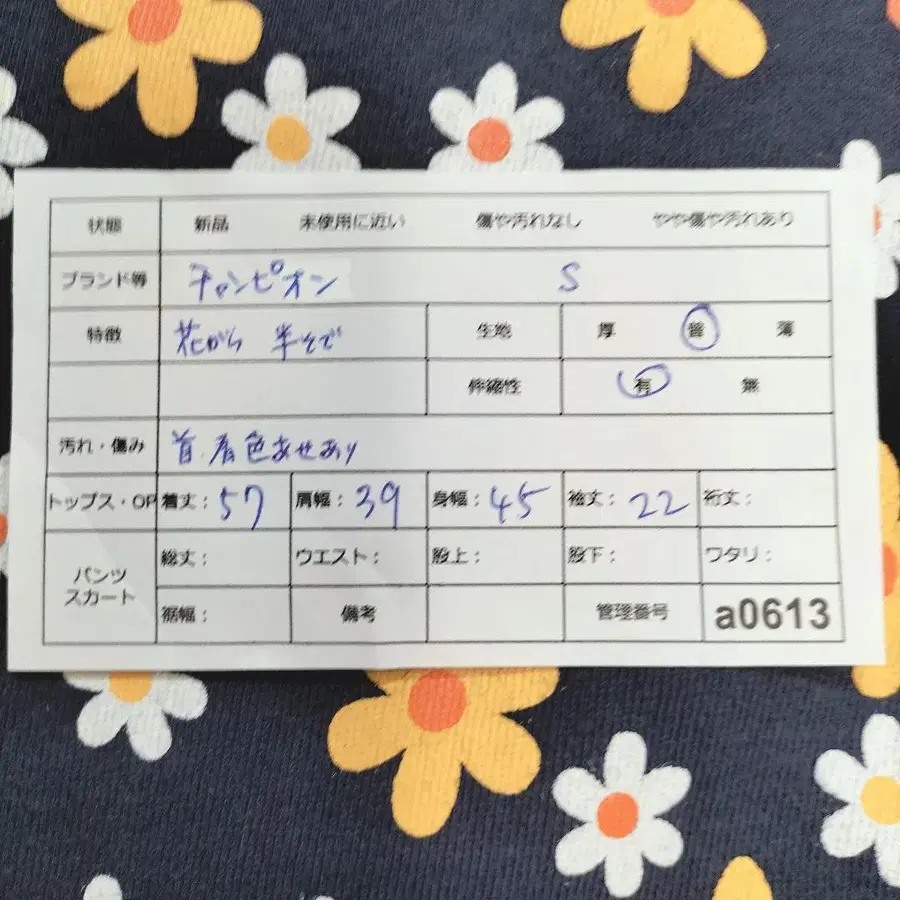 状態 新品 未使用に近い 傷や汚れなし やや傷や汚れあり
ブランド等 チャンピオン S
特徴 花がら 半そで 生地 厚 普 薄
伸縮性 有 無
汚れ・傷み 首.肩色あせあり
トップス・OP 着丈：57 肩幅：39 身幅：45 袖丈：22 裄丈：
パンツ スカート 総丈： ウエスト： 股上： 股下： ワタリ：
裾幅： 備考 管理番号 a0613